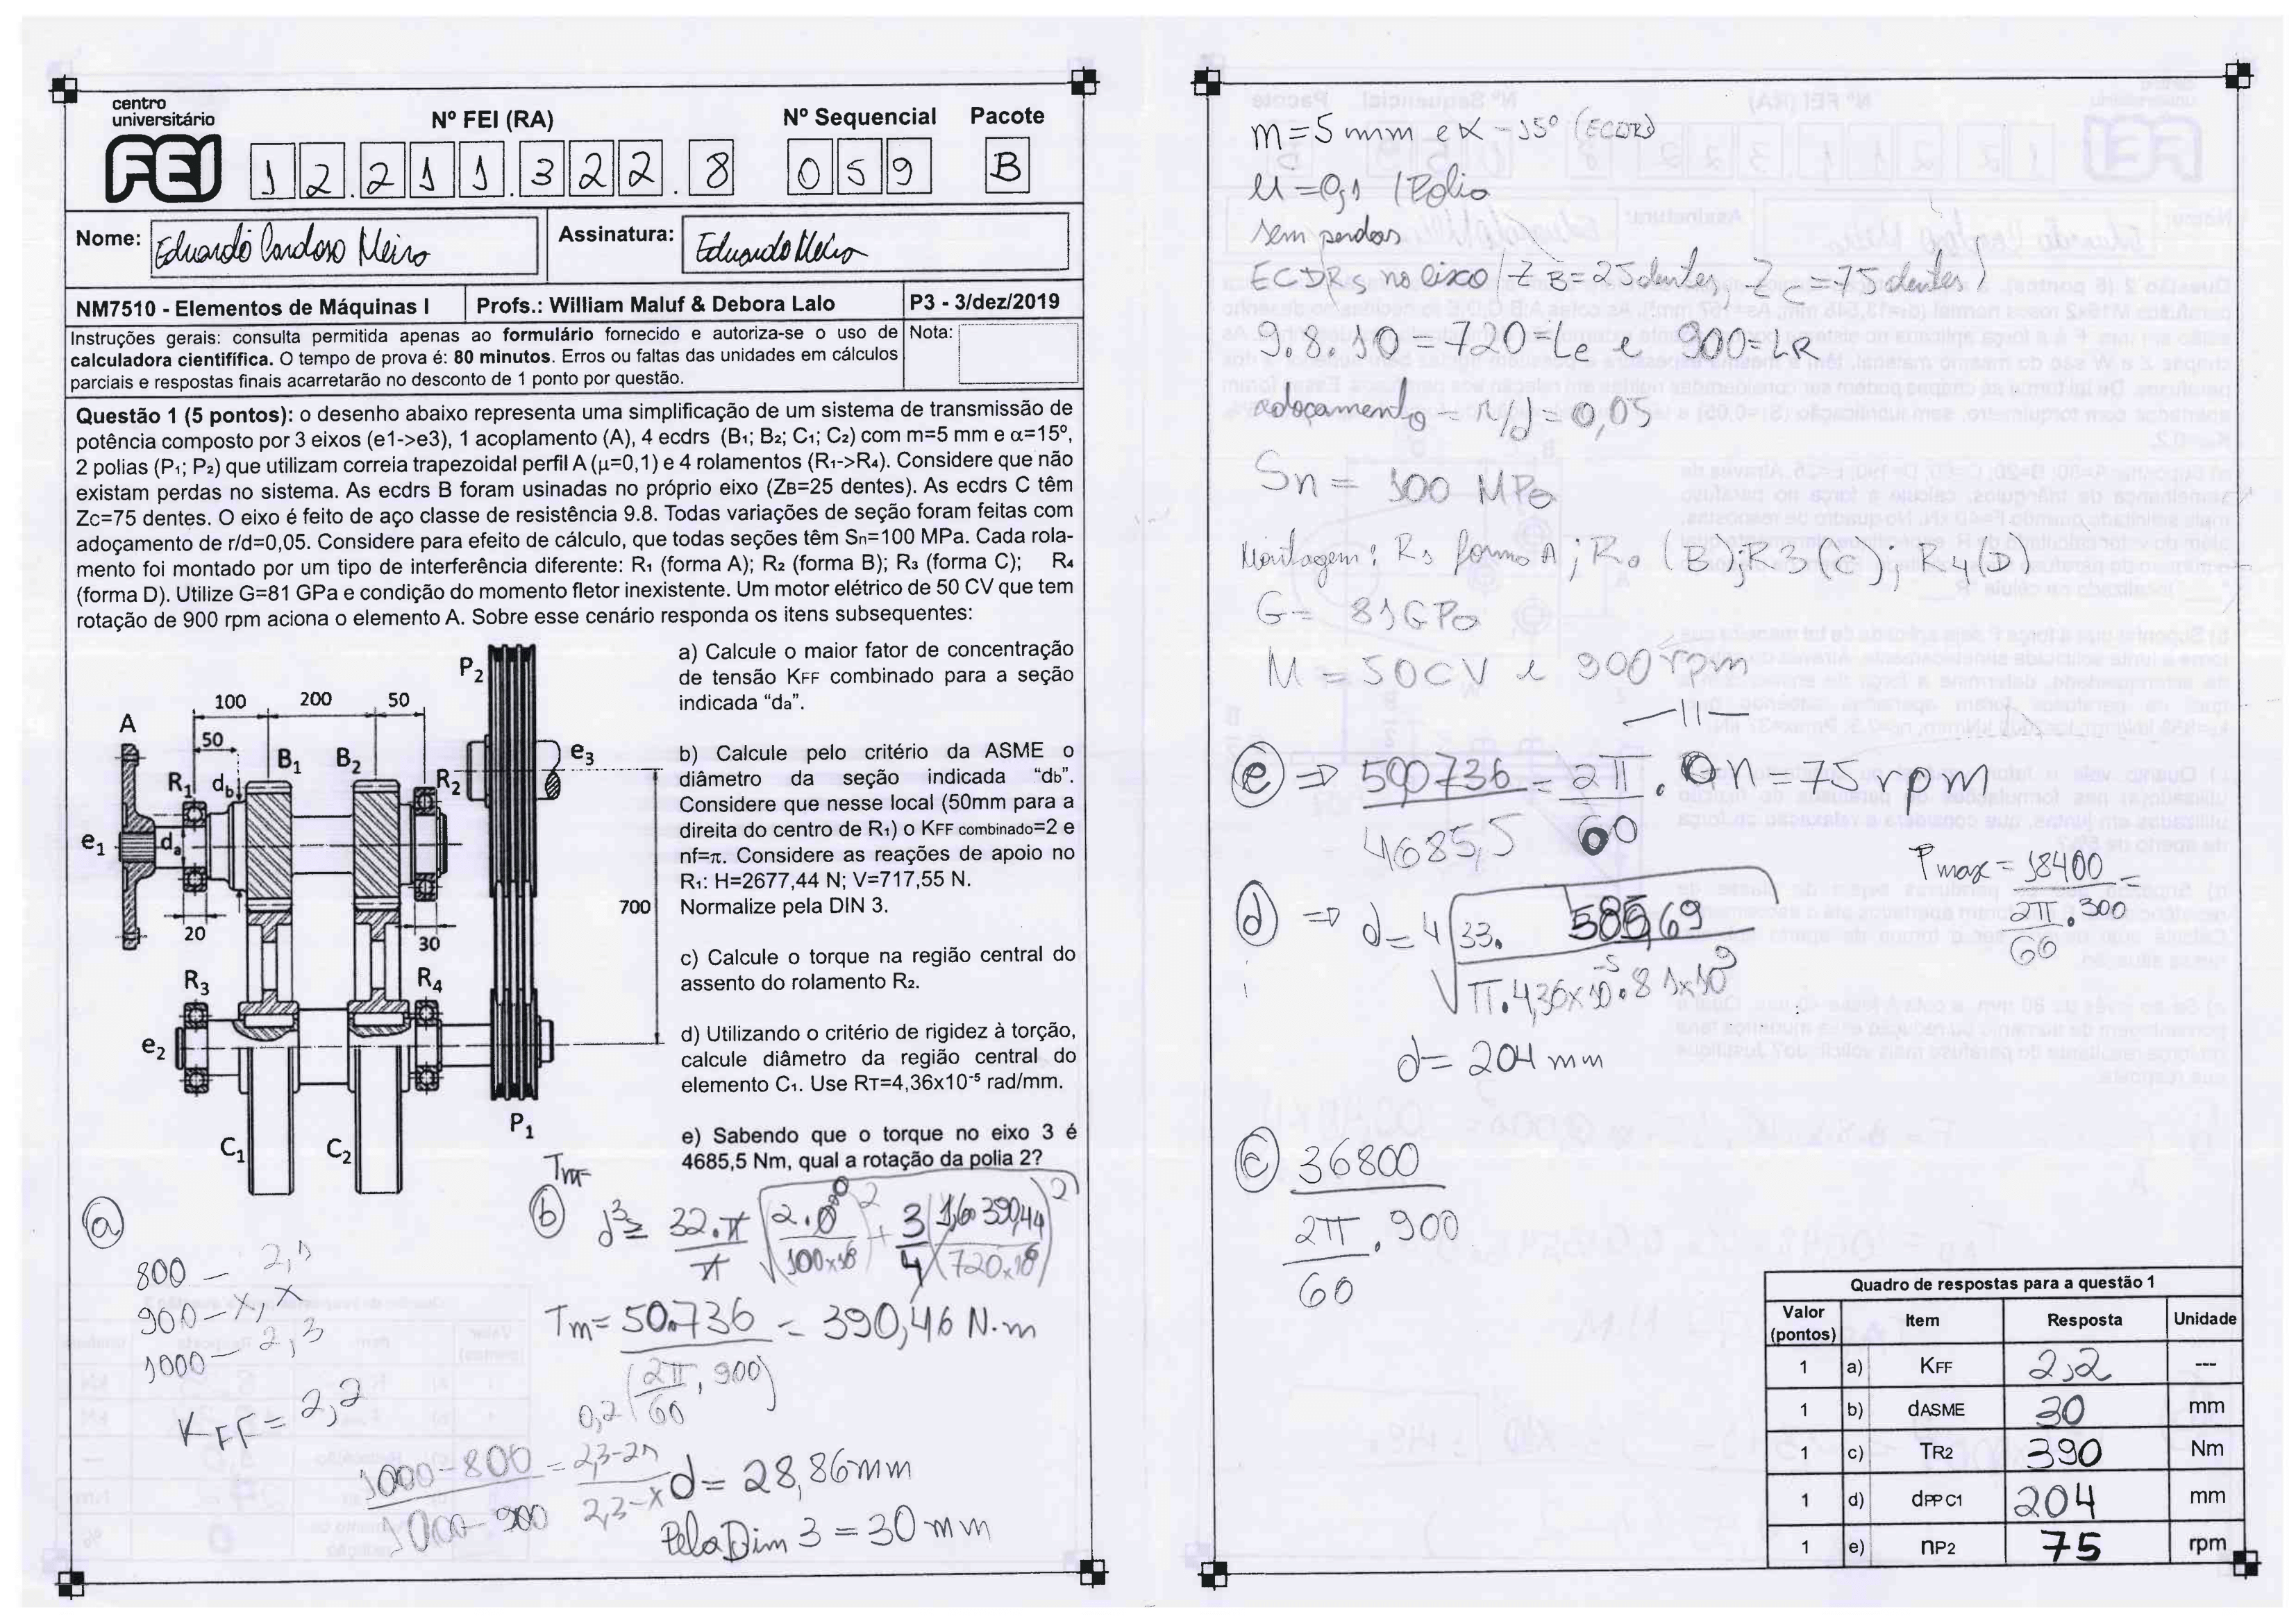 centro
universitário
FEI
Nº FEI (RA)
Nº Sequencial
Pacote
12.211.322.8
059
B
Nome: Eduardo Cardoso Meiro
Assinatura: Eduardo Meiro
NM7510 - Elementos de Máquinas I
Profs.: William Maluf & Debora Lalo
P3 - 3/dez/2019
Instruções gerais: consulta permitida apenas ao formulário fornecido e autoriza-se o uso de
calculadora cientifífica. O tempo de prova é: 80 minutos. Erros ou faltas das unidades em cálculos
parciais e respostas finais acarretarão no desconto de 1 ponto por questão.
Nota:
Questão 1 (5 pontos): o desenho abaixo representa uma simplificação de um sistema de transmissão de
potência composto por 3 eixos (e1->e3), 1 acoplamento (A), 4 ecdrs (B1; B2; C1; C2) com m=5 mm e α=15º,
2 polias (P1; P2) que utilizam correia trapezoidal perfil A (μ=0,1) e 4 rolamentos (R1->R4). Considere que não
existam perdas no sistema. As ecdrs B foram usinadas no próprio eixo (ZB=25 dentes). As ecdrs C têm
Zc=75 dentes. O eixo é feito de aço classe de resistência 9.8. Todas variações de seção foram feitas com
adoçamento de r/d=0,05. Considere para efeito de cálculo, que todas seções têm Sn=100 MPa. Cada rola-
mento foi montado por um tipo de interferência diferente: R1 (forma A); R2 (forma B); R3 (forma C); R4
(forma D). Utilize G=81 GPa e condição do momento fletor inexistente. Um motor elétrico de 50 CV que tem
rotação de 900 rpm aciona o elemento A. Sobre esse cenário responda os itens subsequentes:
a) Calcule o maior fator de concentração
de tensão KFF combinado para a seção
indicada "da".
b) Calcule pelo critério da ASME o
diâmetro da seção indicada "db".
Considere que nesse local (50mm para a
direita do centro de R1) o KFF combinado=2 e
nf=π. Considere as reações de apoio no
R1: H=2677,44 N; V=717,55 N.
Normalize pela DIN 3.
c) Calcule o torque na região central do
assento do rolamento R2.
d) Utilizando o critério de rigidez à torção,
calcule diâmetro da região central do
elemento C1. Use RT=4,36x10-5 rad/mm.
e) Sabendo que o torque no eixo 3 é
4685,5 Nm, qual a rotação da polia 2?
P2
100 200 50
A
50
B1 B2
e3
R1 db R2
e1 da
700
20 30
R3 R4
e2
P1
C1 C2
a
800 - 2,1
900 - x,x
1000 - 2,3
KFF = 2,2
1000-800 = 2,3-21
1000-900 2,3-x
b d³≥ 32.π √(2.0/100x10⁶)² + 3/4 (1,60 390,44/720x10⁶)²
π
Tm= 50.736 = 390,46 N.m
(2π . 900)
60
d= 28,86mm
Pela Dim 3 = 30 mm
m=5 mm e α -15º (ECDRS)
μ=0,1 (Polia
sem perdas
ECDRs no eixo (ZB=25dentes, Zc=75 dentes)
9.8.10=720=Le e 900=LR
adoçamento - r/d=0,05
Sn= 100 MPa
Montagem: R1 forma A; R2 (B); R3(C); R4(D)
G= 81GPa
M=50CV e 900 rpm
-11-
e ⇒ 500736 = 2π . n=75 rpm
4685,5 60
Pmax= 18400 =
2π.300
60
d ⇒ d= 4√33. 585,69
π.4,36x10-5.81x10⁹
d= 204 mm
c 36800
2π . 900
60
Quadro de respostas para a questão 1
Valor (pontos) Item Resposta Unidade
1 a) KFF 2,2 ---
1 b) dASME 30 mm
1 c) TR2 390 Nm
1 d) dPP C1 204 mm
1 e) nP2 75 rpm